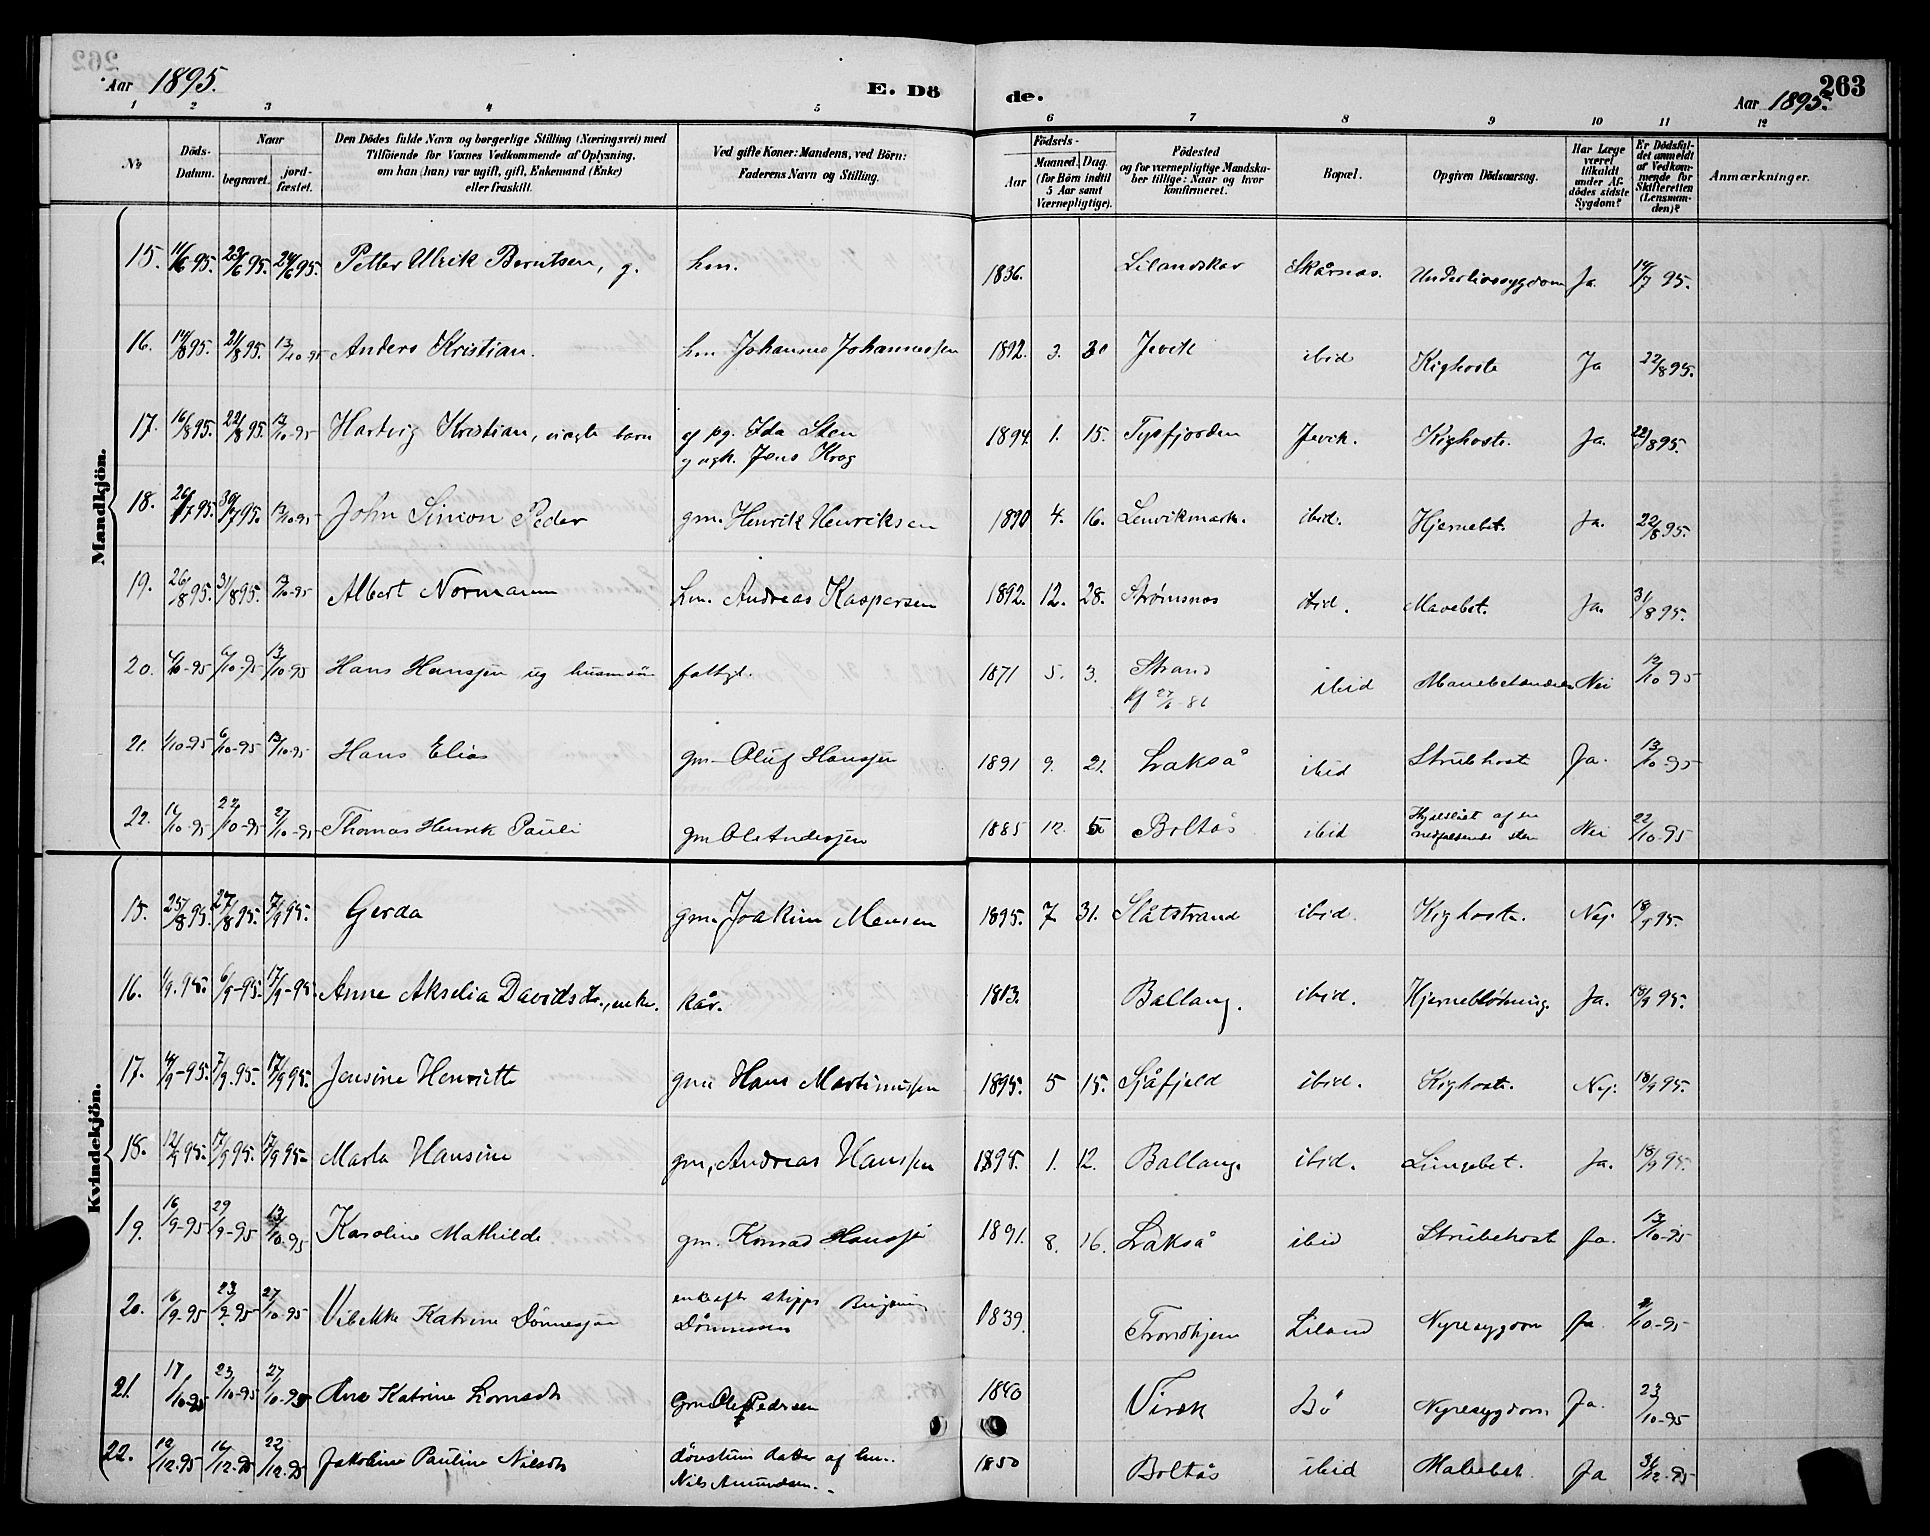 262
Aar 1895.
E. Dö
de.
263
Aar 1895.
1 2 3 4 5 6 7 8 9 10 11 12
No
Döds-Datum.
Naar
begravet.
jord-fæstet.
Den Dödes fulde Navn og borgerlige Stilling (Næringsvei) med
Tilföiende for Voxnes Vedkommende af Oplysning,
om han (hun) var ugift, gift, Enkemand (Enke)
eller fraskilt.
Ved gifte Koner: Mandens, ved Börn:
Faderens Navn og Stilling.
Födsels-
Aar
Maaned. Dag.
(for Börn indtil
5 Aar samt
Værnepligtige).
Födested
og for værnepligtige Mandska-
ber tillige: Naar og hvor
konfirmeret.
Bopæl.
Opgiven Dödsaarsag.
Har Læge
været
tilkaldt
under Af-
dödes sidste
Sygdom?
Er Dödsfal-
det anmeldt
af Vedkom-
mende for
Skifteretten
(Lensman-
den)?
Anmærkninger.
Mandkjön.
15. 11/6 95. 23/6 95. 24/6 95. Petter Ulrik Berntsen, g. hm. 1836. Lilandskar Skårnes. Underlivssygdom Ja. 14/7 95.
16. 14/8 95. 21/8 95. 13/10 95 Anders Kristian. hm Johannes Johannessen 1892. 3. 30 Jevik ibid Kighoste Ja 22/8 95.
17. 16/8 95. 22/8 95. 13/10-95 Hartvig Kristian, uægte barn af pg. Ida Sten 1894. 1. 15. Tysfjorden Jevik. Kighoste. Ja. 22/8 95.
og ugk. Jens Krog
18. 26/7 95. 30/7 95. 13/10-95 John Simon Peder gm. Henrik Henriksen 1890 4. 16. Lenvikmark. ibid. Hjernebet. Ja. 22/8 95.
19. 26/8 95. 31/8 95. 13/10-95 Albert Normann hm. Andreas Kaspersen 1892. 12. 28. Strømsnes ibid. Mavebet. Ja. 31/8 95.
20. 6/10-95 13/10 95 Hans Hanssen ug husmsøn fattigl. 1871 5. 3. Strand ibid Mavebetændelse Nei 12/10 95
21. 1/10-95 6/10-95 13/10-95 Hans Elias gm. Oluf Hanssen 1891 9. 21. Lakså ibid Strubehoste Ja. 13/10-95
22. 22/10-95 27/10-95 Thomas Henrik Pauli gm Ole Anderssen 1885 12. 5 Boltås ibid af en Nei 22/10-95
nedfaldende sten
Kvindekjön.
15. 25/8 95. 27/8 95. 17/9 95. Gerda gm. Joakim Monsen 1895. 7 31. Slåtstrand ibid. Kighoste. Nej. 18/9 95.
16. 1/9. 95. 6/9-95. 17/9-95. Anne Akselia Davidsdtr., enke. kår. 1813. Ballang. ibid. Hjerneblödning. Ja. 18/9 95.
17. 4/9-95. 7/9. 95. 17/9 95. Jensine Henriette gm Hans Martinussen 1895. 5 15. Sjåfjeld ibid. Kighoste. Nej. 18/9 95.
18. 12/9 95. 17/9 95. 17/9 95. Marta Hansine gm. Andreas Hanssen 1895. 1. 12. Ballang. ibid. Lungebet. Ja. 18/9 95.
19. 16/9-95 29/9-95 13/10-95 Karoline Mathilde gm. Konrad Hanssen 1891. 8. 16. Lakså ibid Strubehoste Ja. 13/10-95
20. 16/9-95 23/9-95 27/10-95 Vibekke Katrine Dönnesen enke efter skipper 1839. Trondhjem Liland Nyresygdom Ja. 10-95
Dönnessen
21. 17/10-95 23/10-95 27/10-95 Ane Katrine Gm Ole Pedersen 1840 Virek Bö Nyresygdom. Ja. 23/10-95
22. 12/12-95 16/12-95 22/12-95 Jakobine Pauline Nilsdtr døvstum datter af hm. 1850 Boltås ibid Ja 31/12-95
Nils Amundsen.